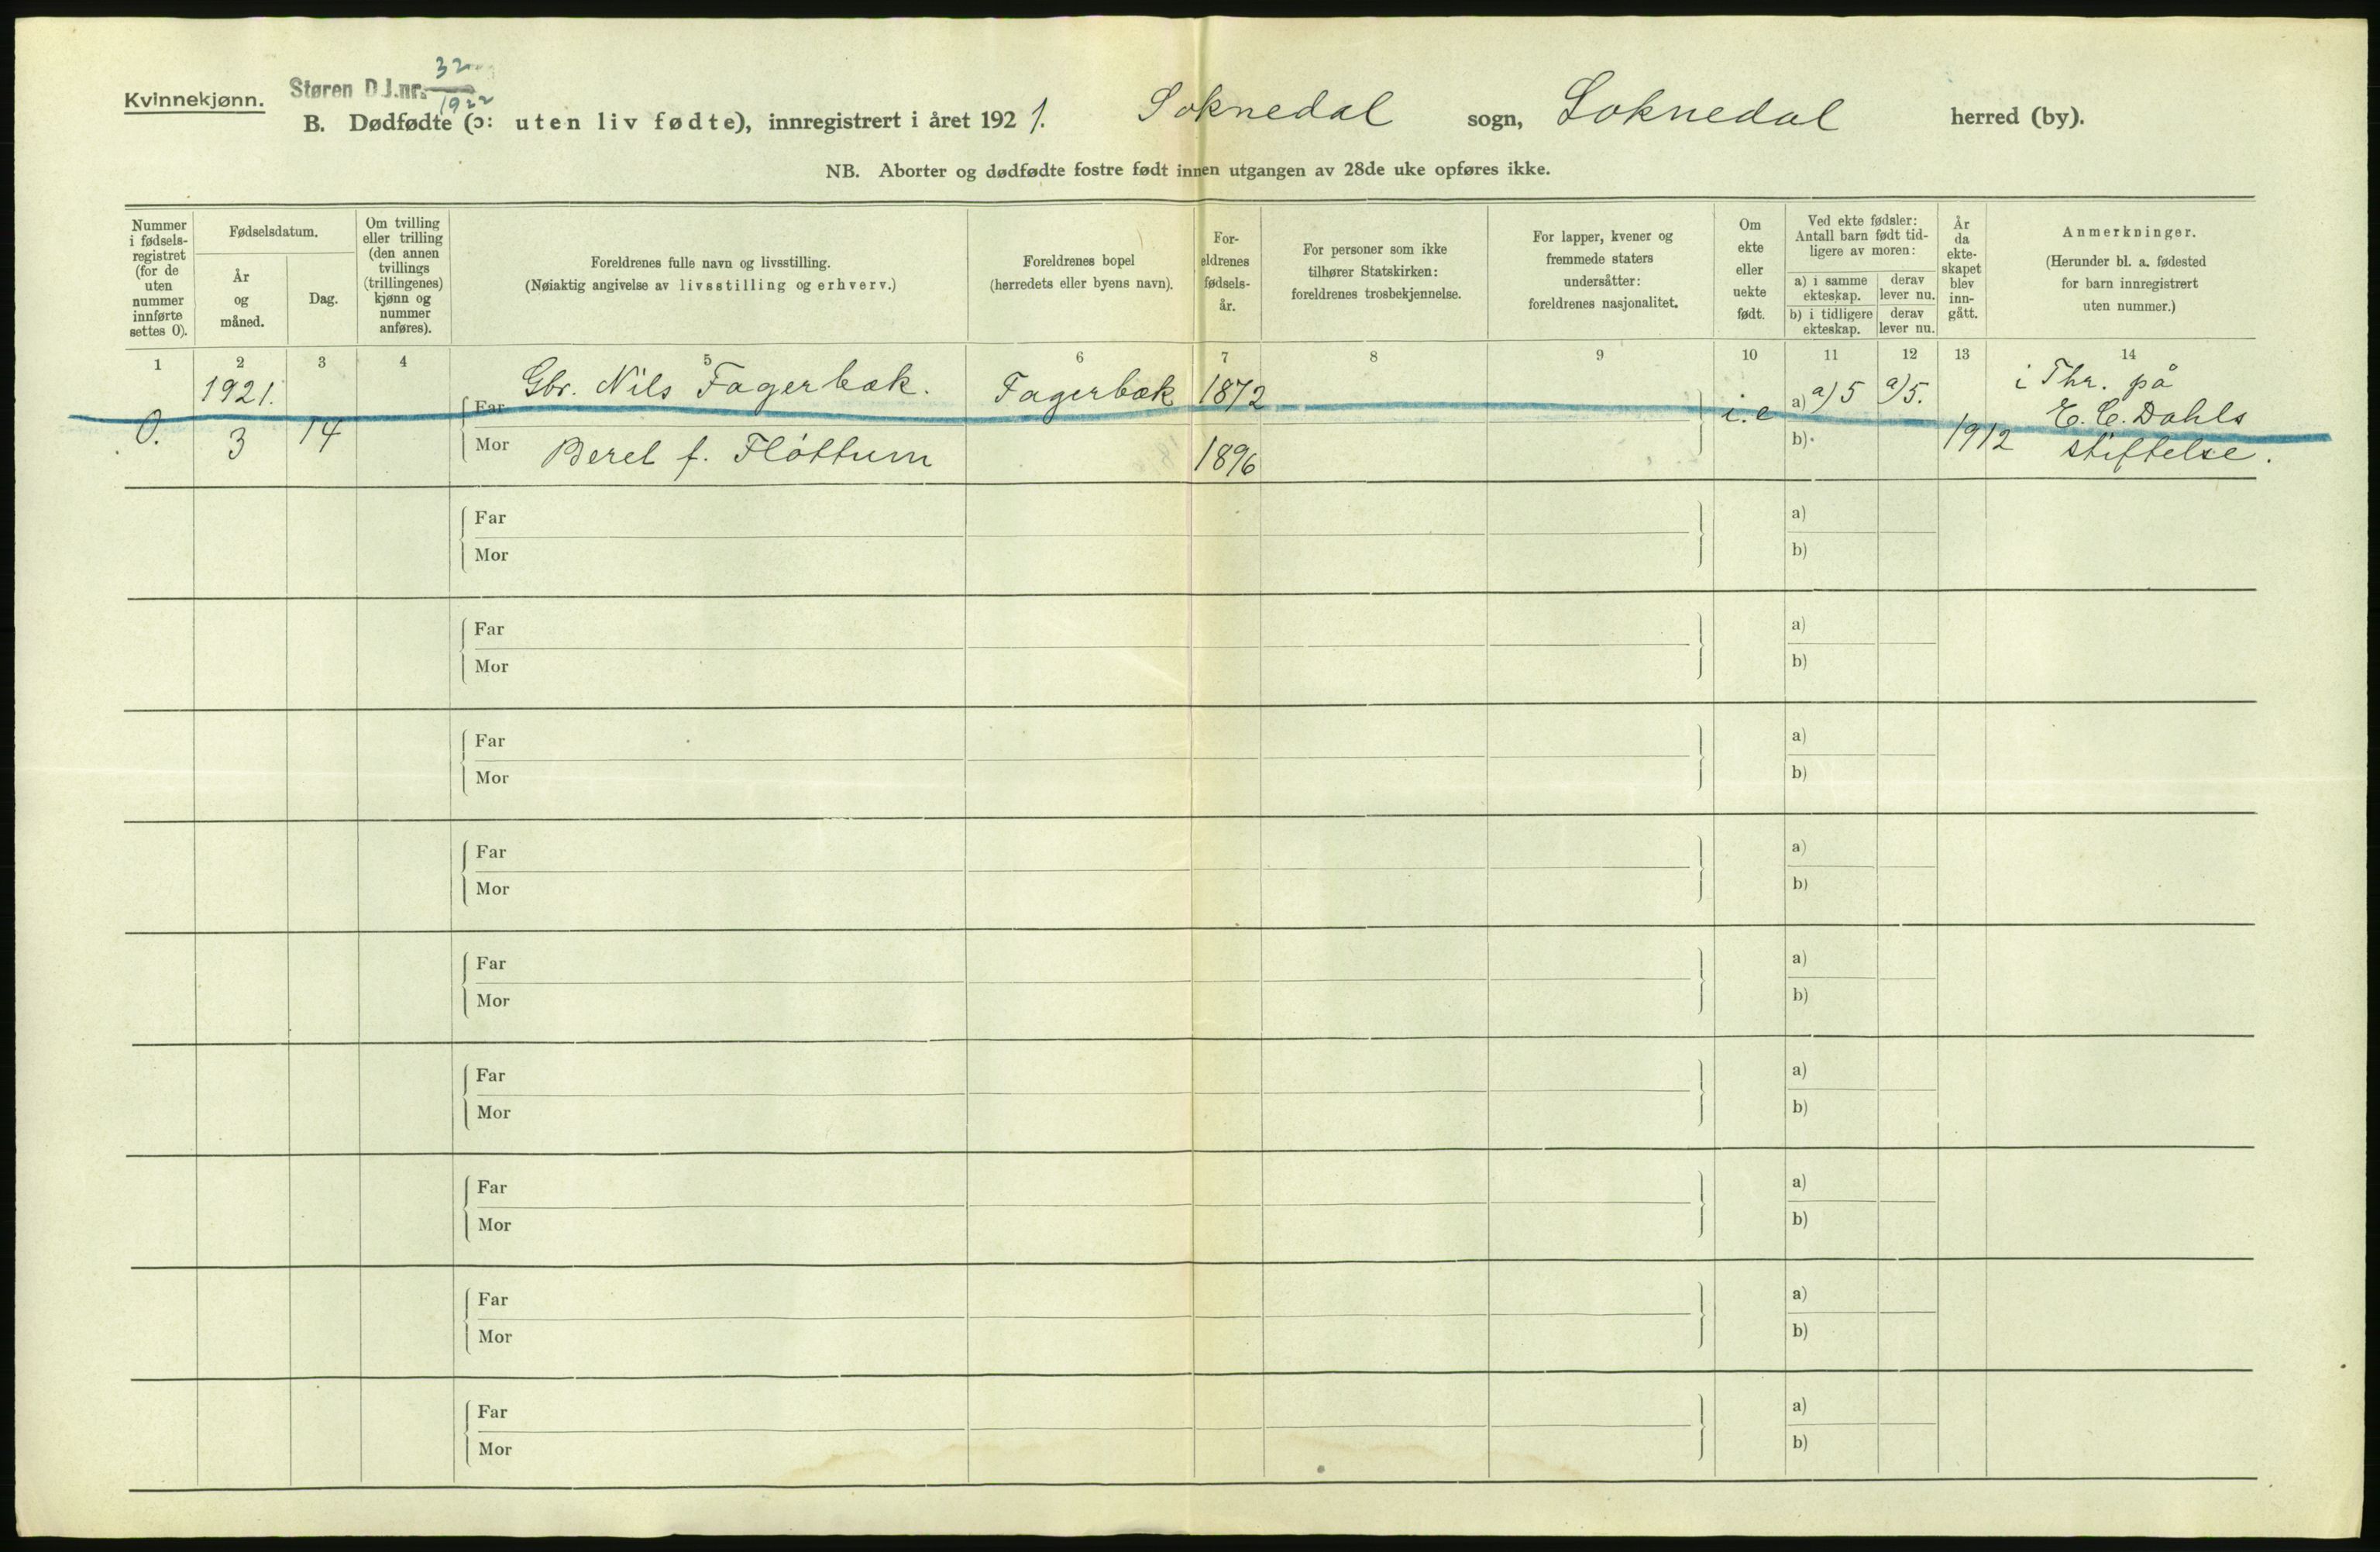 Kvinnekjønn.
Støren D J.nr. 32 1922
B. Dødfødte (ɔ: uten liv fødte), innregistrert i året 1921. Soknedal sogn, Soknedal herred (by).
NB. Aborter og dødfødte fostre født innen utgangen av 28de uke opføres ikke.
Nummer i fødsels-registret (for de uten nummer innførte settes 0).
Fødselsdatum.
År og måned.
Dag.
Om tvilling eller trilling (den annen tvillings (trillingenes) kjønn og nummer anføres).
Foreldrenes fulle navn og livsstilling.
(Nøiaktig angivelse av livsstilling og erhverv.)
Foreldrenes bopel
(herredets eller byens navn).
For-eldrenes fødsels-år.
For personer som ikke tilhører Statskirken: foreldrenes trosbekjennelse.
For lapper, kvener og fremmede staters undersåtter: foreldrenes nasjonalitet.
Om ekte eller uekte født.
Ved ekte fødsler: Antall barn født tid-ligere av moren:
a) i samme ekteskap. derav lever nu.
b) i tidligere ekteskap. derav lever nu.
År da ekte-skapet blev inn-gått.
Anmerkninger.
(Herunder bl. a. fødested for barn innregistrert uten nummer.)
1 2 3 4 5 6 7 8 9 10 11 12 13 14
1921. Far Gbr. Nils Fagerbæk. Fagerbæk 1872 i.e a) a) 5 a) 5. i Thr. på
E. C. Dahls
0. 3 14 Mor Berel f. Fløttum 1896 b) 1912 stiftelse.
Far a)
Mor b)
Far a)
Mor b)
Far a)
Mor b)
Far a)
Mor b)
Far a)
Mor b)
Far a)
Mor b)
Far a)
Mor b)
Far a)
Mor b)
Far a)
Mor b)